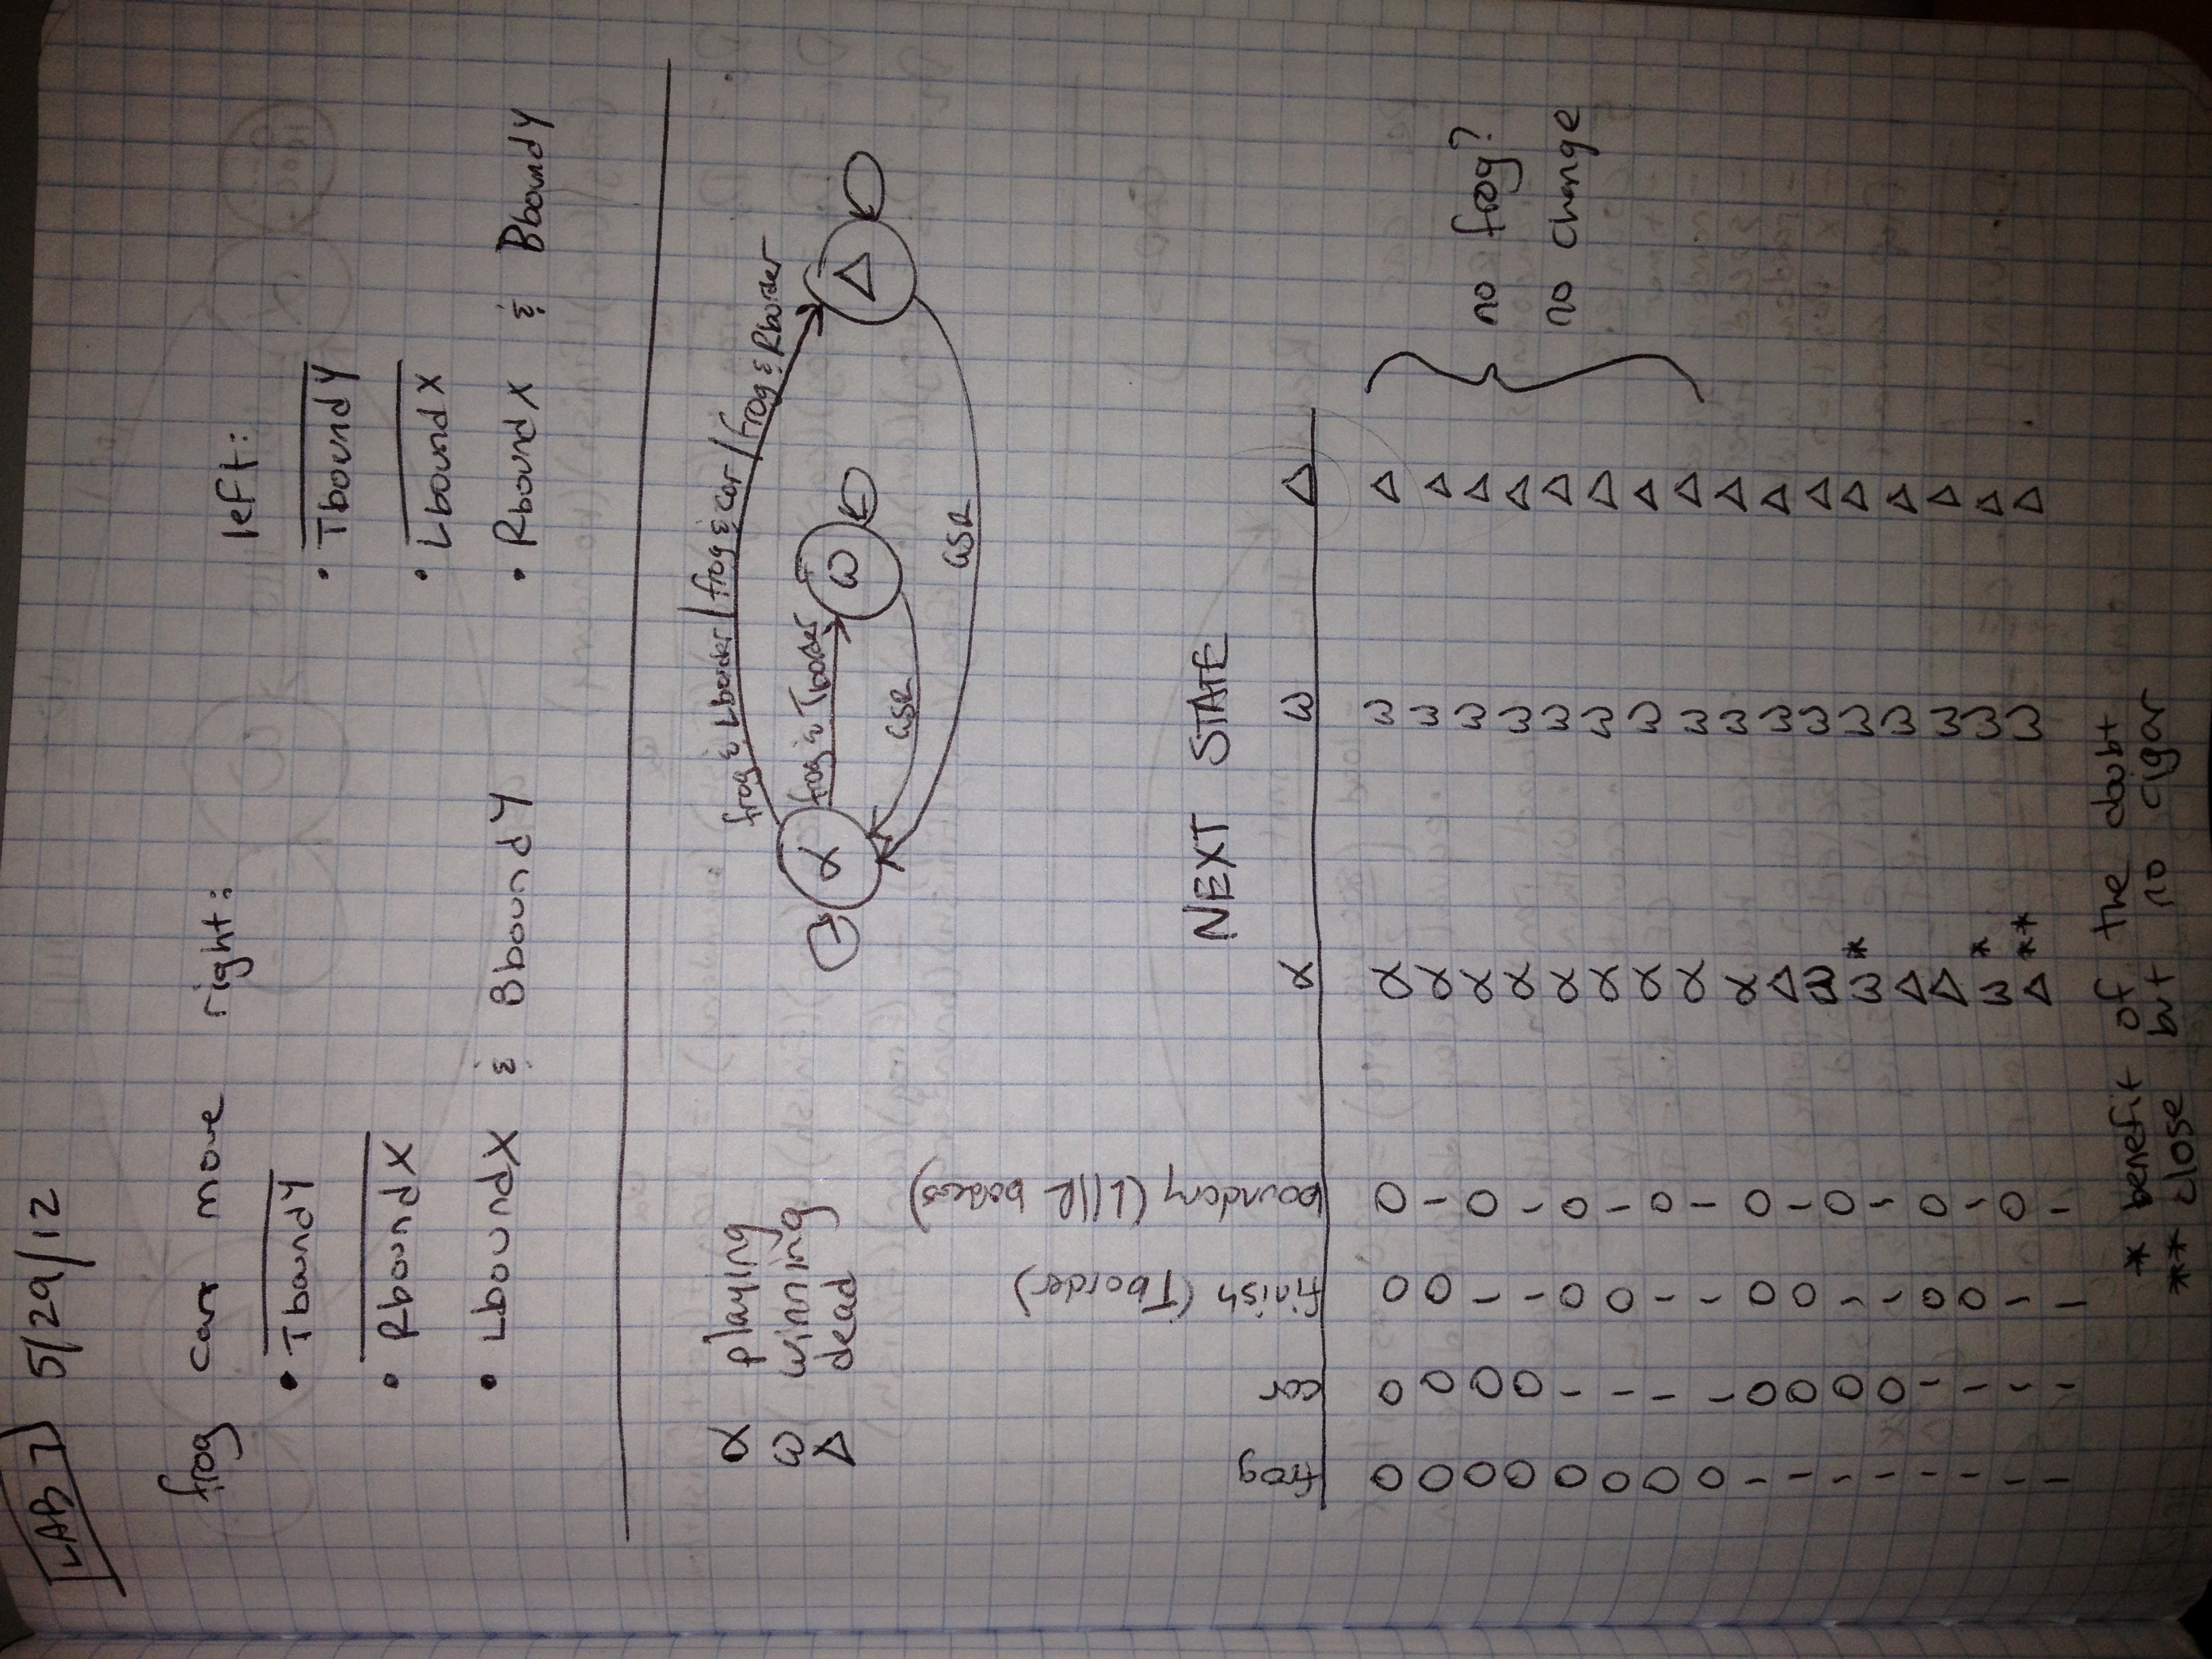 LAB 7 5/29/12
frog can move right:
• TboundY
• RboundX
• LboundX & BboundY
left:
• TboundY
• LboundX
• RboundX & BboundY
α playing
ω winning
Δ dead
frog & Lborder / frog & car / frog & Rborder
α frog & Tborder ω Δ
GSR
GSR
NEXT STATE
frog car finish (Tborder) boundary (L||R borders) α ω Δ
0 0 0 0 α ω Δ
0 0 0 1 α ω Δ
0 0 1 0 α ω Δ
0 0 1 1 α ω Δ
0 1 0 0 α ω Δ
0 1 0 1 α ω Δ
0 1 1 0 α ω Δ
0 1 1 1 α ω Δ
1 0 0 0 α ω Δ
1 0 0 1 Δ ω Δ
1 0 1 0 ω ω Δ
1 0 1 1 ω * ω Δ
1 1 0 0 Δ ω Δ
1 1 0 1 Δ ω Δ
1 1 1 0 ω * ω Δ
1 1 1 1 Δ ** ω Δ
no frog?
no change
* benefit of the doubt
** close but no cigar